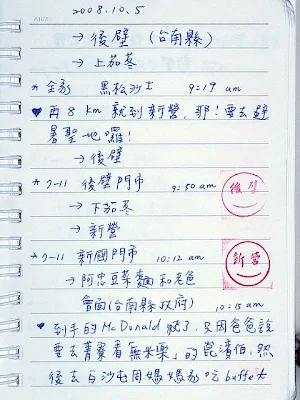 2008.10.5
→ 後壁 (台南縣)
→ 上茄苳
* 全家 黑松沙士 9:19 am
♥ 再 8 km 就到新營,耶!要去避
暑聖地囉!
→ 後壁
* 7-11 後壁門市 9:50 am
後壁
→ 下茄苳
→ 新營
* 7-11 新國門市 10:12 am
新營
→ 阿忠豆菜麵和老爸
會面(台南縣政府) 10:15 am
♥ 到手的 McDonald 飛了,只因爸爸說
要去菁寮看「無米樂」的崑濱伯,然
後去白沙屯周媽媽家吃 buffet